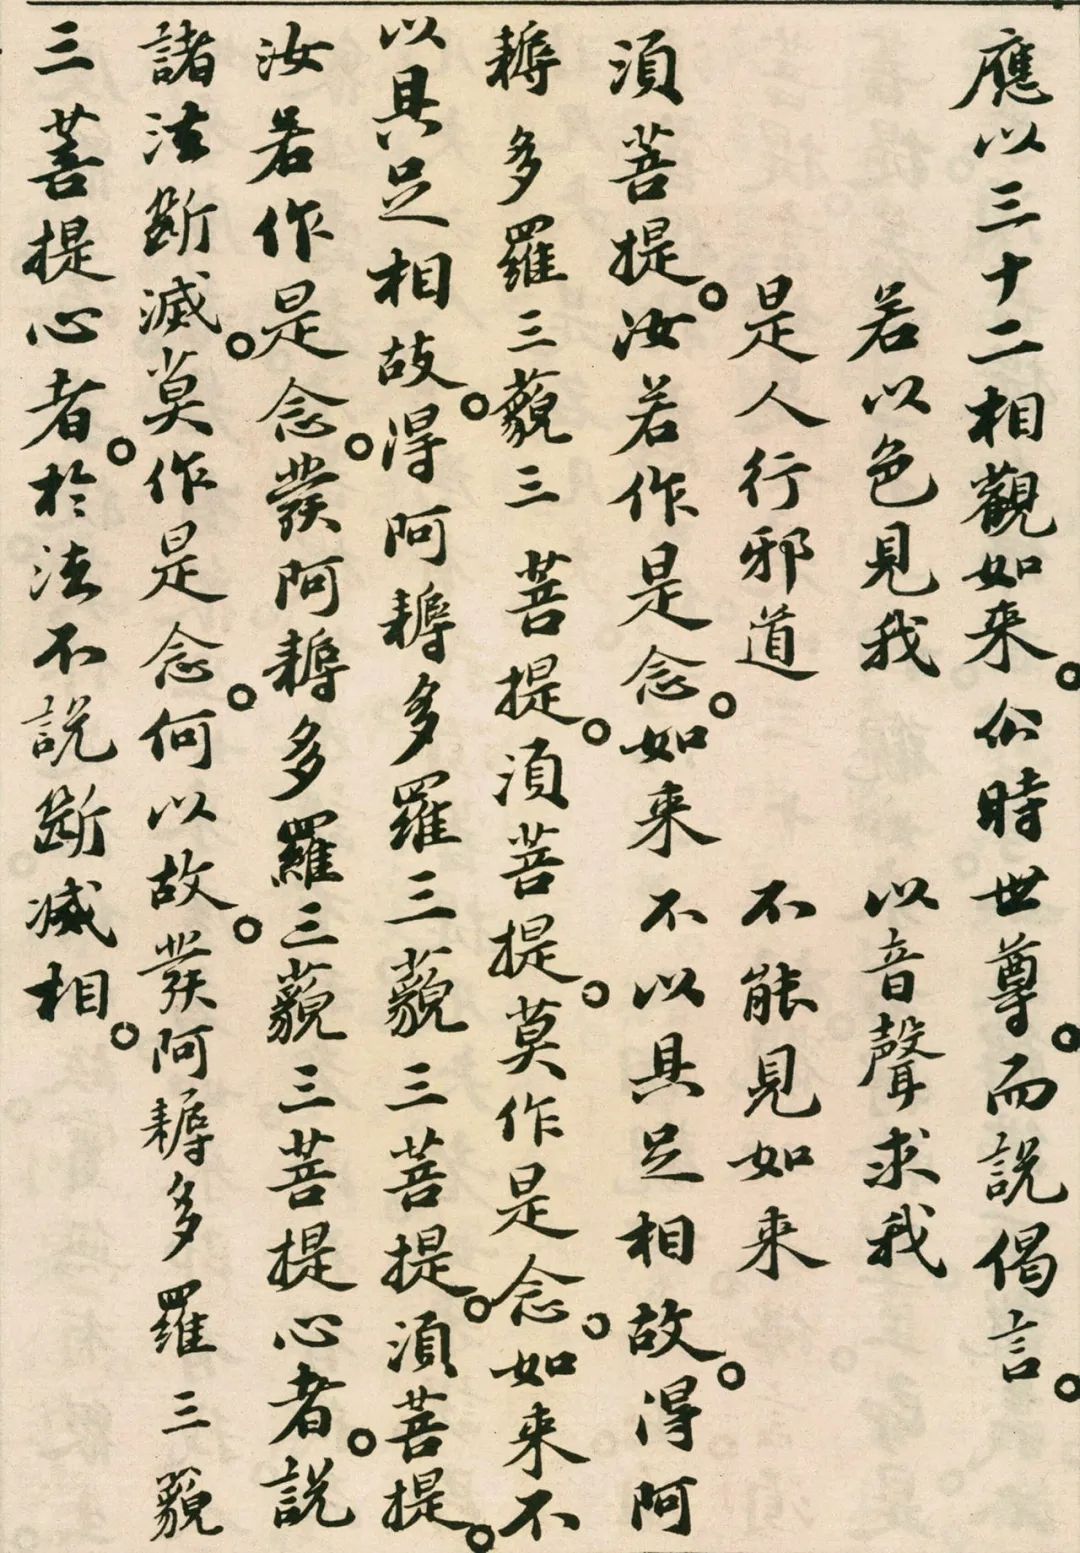 應以三十二相觀如来。尒時世尊。而説偈言。
若以色見我　以音聲求我
是人行邪道　不能見如来
須菩提。汝若作是念。如来不以具足相故。得阿
耨多羅三藐三菩提。須菩提。莫作是念。如来不
以具足相故。得阿耨多羅三藐三菩提。須菩提。
汝若作是念。發阿耨多羅三藐三菩提心者。説
諸法斷滅。莫作是念。何以故。發阿耨多羅三藐
三菩提心者。於法不説斷滅相。